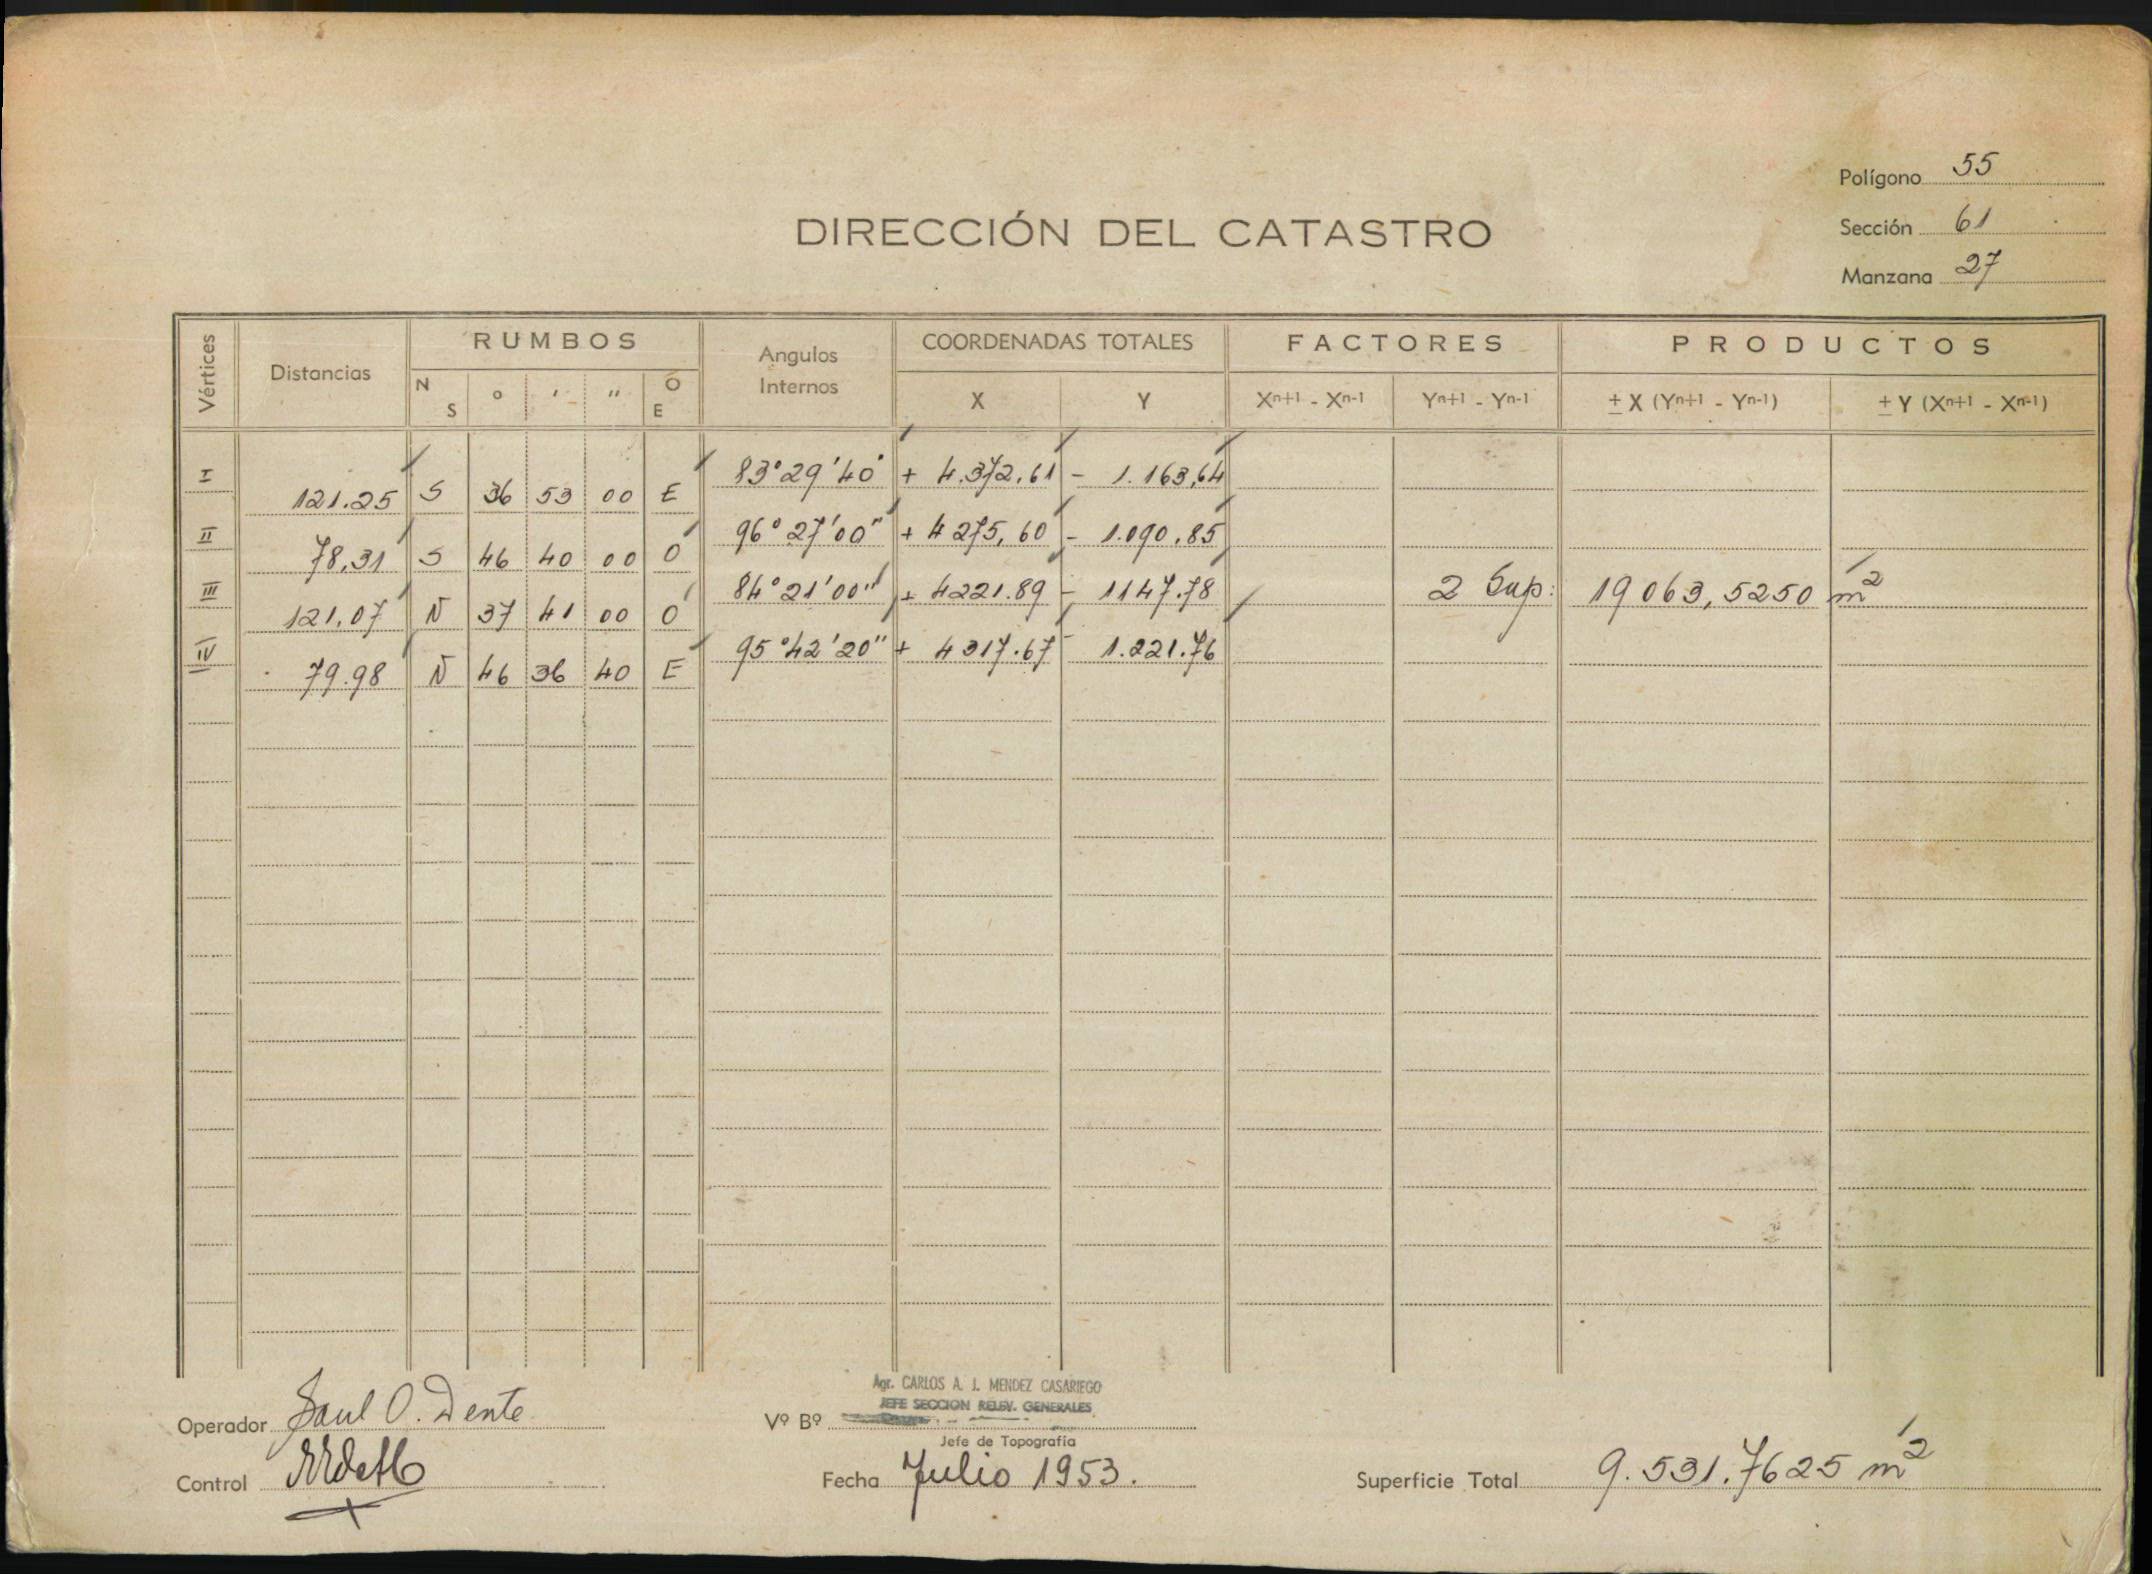 Polígono 55
DIRECCIÓN DEL CATASTRO
Sección 61
Manzana 27
Vértices Distancias RUMBOS Angulos Internos COORDENADAS TOTALES FACTORES PRODUCTOS
N S ° ' " O E X Y Xn+1 - Xn-1 Yn+1 - Yn-1 ± X (Yn+1 - Yn-1) ± Y (Xn+1 - Xn-1)
I 83°29'40" + 4.372,61 - 1.163,64
121.25 S 36 53 00 E
II 96°27'00" + 4275,60 - 1.090.85
78,31 S 46 40 00 O
III 84°21'00" + 4221.89 - 1147.78 2 Sup: 19063,5250 m2
121,07 N 37 41 00 O
IV 95°42'20" + 4317.67 - 1.221.76
79.98 N 46 36 40 E
Agr. CARLOS A. J. MENDEZ CASARIEGO
JEFE SECCION RELEV. GENERALES
Operador Saul O. Dente Vº Bº
Jefe de Topografía
Control Fecha Julio 1953. Superficie Total 9.531.7625 m2